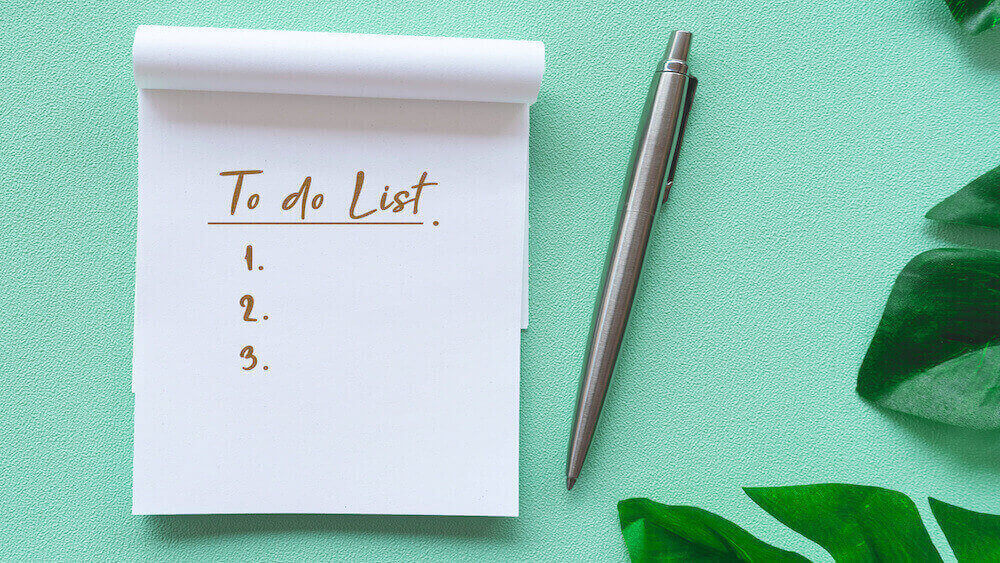 To do List.
1.
2.
3.